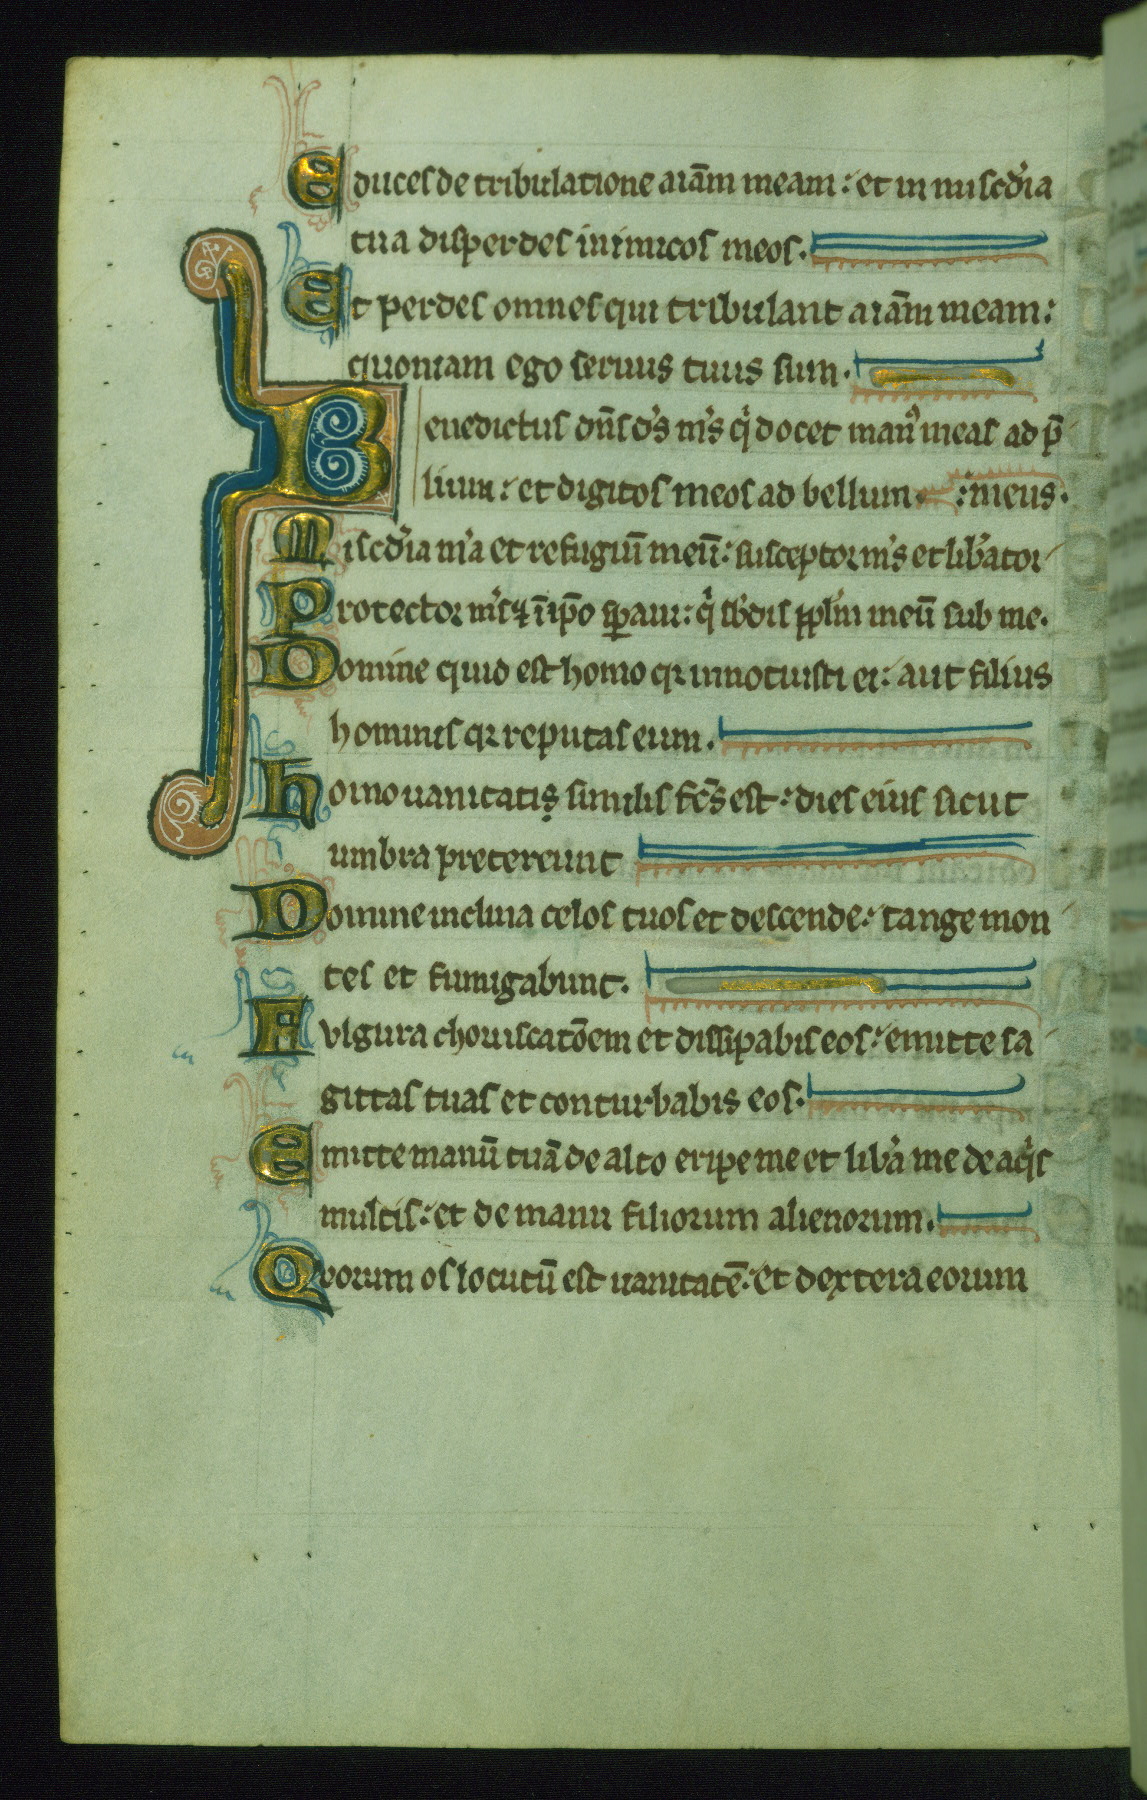 Educes de tribulatione aīam meam: et in miscd'ia
tua disperdes inimicos meos.
Et perdes omnes qui tribulant aīam meam:
quoniam ego seruus tuus sum.
Benedictus dn̄s d's m's q' docet man' meas ad p̄
lium: et digitos meos ad bellum. :meus.
Miscd'ia m'a et refugiū meū: susceptor m's et lib'ator
Protector m's & ī ip̄o sp̄aui: q' sb'dis pp̄lm meū sub me.
Domine quid est homo qr innotuisti ei: aut filius
hominis qr reputas eum.
homo uanitatis similis fc̄s est: dies eius sicut
umbra pretereunt
Domine inclina celos tuos et descende: tange mon
tes et fumigabunt.
Fulgura choruscatōem et dissipabis eos: emitte sa
gittas tuas et conturbabis eos.
Emitte manū tuā de alto eripe me et lib'a me de aq'is
multis: et de manu filiorum alienorum.
Quorum os locutū est uanitatē: et dextera eorum